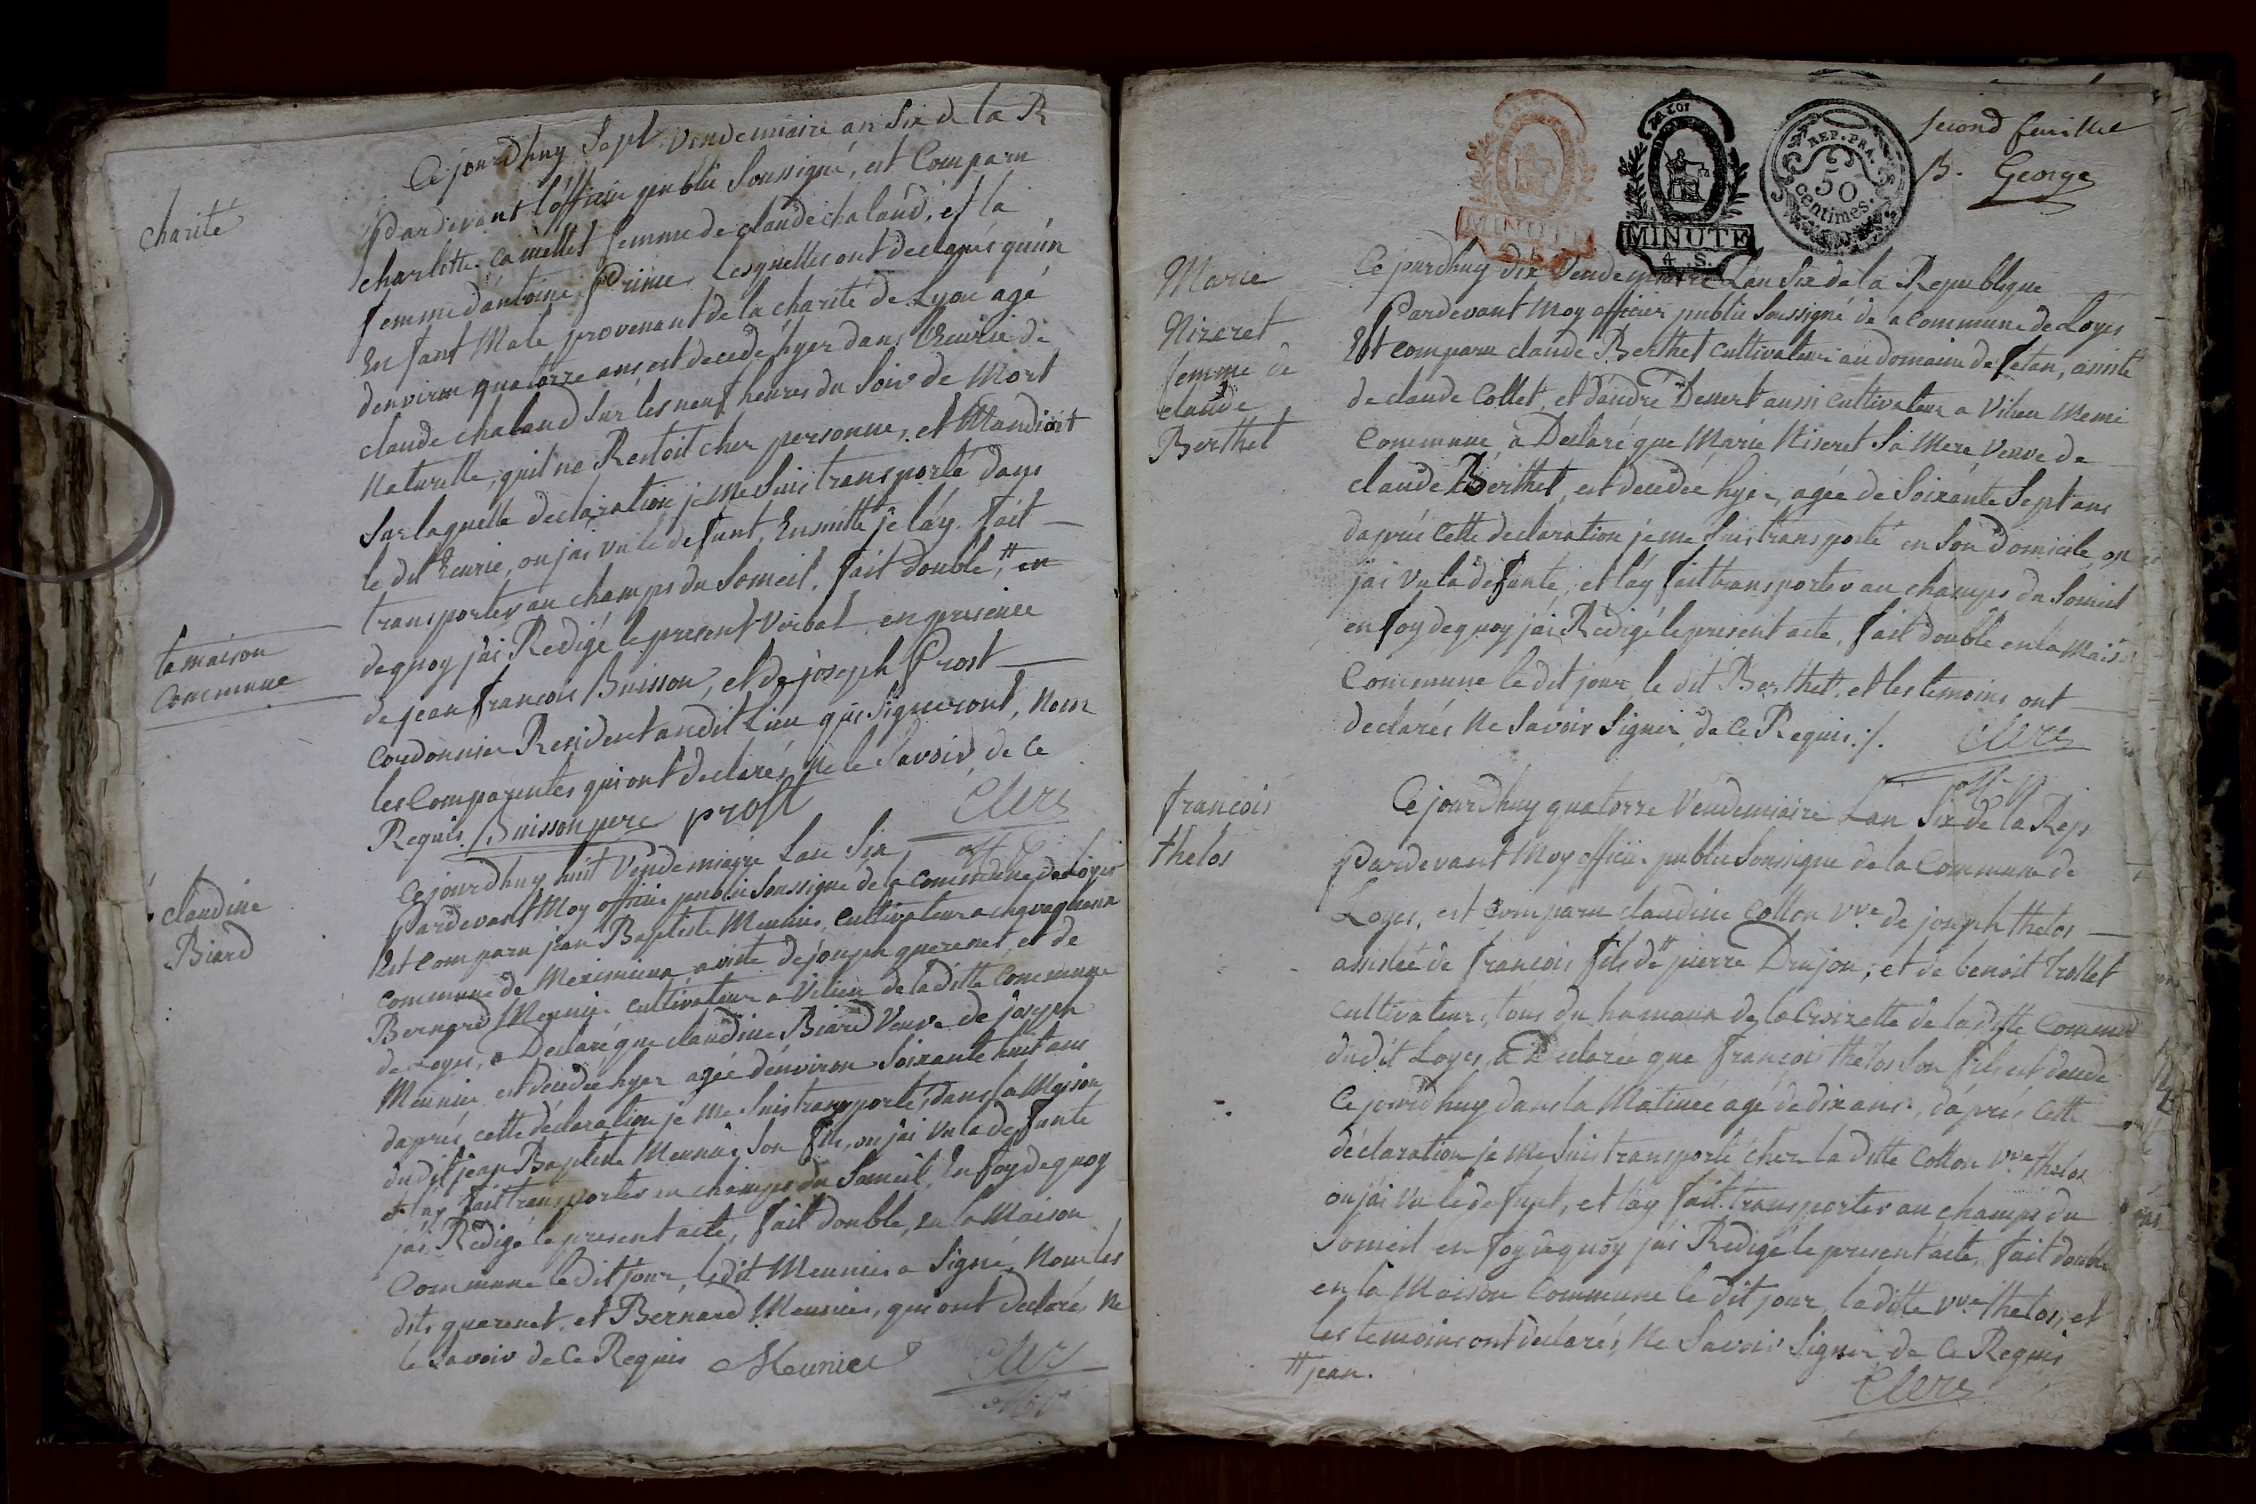 charité
Ce jourdhuy Sept Vendemiaire an Six de la R
Pardevant l'officier public Soussigné, est Comparu
charlotte camellet femme de claude chaland, et la
femme dantoine Prime, lesquelles ont declarés qu'un
Enfant Male provenant de la charité de Lyon agé
denviron quatorze ans est decedé hyer dans l'Ecurie de
claude chaland Sur les neuf heures du Soir de Mort
Naturelle, quil ne Restoit cher personne, et Mandioit
Sur laquelle declaration je me Suis transporté dans
le dit Ecurie, ou jai vu le defunt, Ensuitte je láy fait
transporter au champs du Someil. fait double, # en
la maison
commune
dequoy j'ai Redigé le present Verbal en presence
de jean francois Buisson, et de joseph Prost
Cordonnier Resident audit Lieu qui Signeront, Non
les Comparentes qui ont declarés Ne le Savoir de ce
Requis. / Buisson pere prost Clerc
off. p.
claudine
Biard
Ce jourdhuy huit Vendemiaire Lan Six
Pardevant Moy officier public Soussigné de la Commune de Loyes
Est Comparu jean Baptiste Meunier Cultivateur a
commune de Meximieux assisté de joseph querenet, et de
Bernard Meunier cultivateur a Vilieu de la ditte Commune
de Loyes, a Declaré que claudine Biard Veuve de joseph
Meunier est decedée hyer agée denviron Soixante huit ans
daprés cette declaration je me Suis transporté dans la Maison
du dit jean Baptiste Meunier Son fils, ou jai vu la defunte
et lay fait transporter au champs du Someil, En foy de quoy
jai Redigé le present acte, fait double, en la Maison
Commune le dit jour, le dit Meunier a Signé, Non les
dits querenet, et Bernard Meunier, qui ont declarés Ne
le Savoir de Ce Requis Meunier Clerc
off. p.
second feuillet
B. George
MINUTE
MINUTE
4. S.
REP. FRA.
50
centimes.
Marie
Nizeret
femme de
claude
Berthet
Ce jourdhuy dix Vendemiaire Lan Six de la Republique
Pardevant Moy officier public Soussigné de la Commune de Loyes
Est comparu claude Berthet Cultivateur au domaine de fetan, assisté
de claude Collet, et dandré Dessert aussi Cultivateur a Vilieu Meme
Commune, a Declaré que Marie Niseret Sa Mere Veuve de
claude Berthet, est decedée hyer, agée de Soixante Sept ans
daprés Cette declaration je me Suis transporté en Son Domicile, ou
jai Vu la defunte, et láy fait transporter au champs du Someil
en foy de quoy jái Redigé le present acte, fait double en la Maison
Commune le dit jour le dit Berthet, et les temoins ont
declarés Ne Savoir Signer de Ce Requis ./. Clerc
off. p.
francois
thelos
Ce jourdhuy quatorze Vendemiaire Lan Six de la Rep
Pardevant Moy officier public Soussigné de la Commune de
Loyes, est comparu claudine Collon vve de joseph thelos
assistée de francois fils de # pierre Drujon, et de benoit trollet
Cultivateurs, tous du hamaux de la Croizette de la ditte Commune
dudit Loyes, a Declarée que francois thelos Son fils est decedé
Ce jourdhuy dans la Matinée agé de dix ans, daprés Cette
déclaration je me Suis transporté cher la ditte Collon vve thelos
ou jai Vu le defunt, et láy fait transporter au champs du
Someil en foy dequoy jai Redigé le present acte, fait double
en la Maison Commune le dit jour, la ditte vve thelos, et
les temoins ont declarés Ne Savoir Signer de Ce Requis
# jean. Clerc